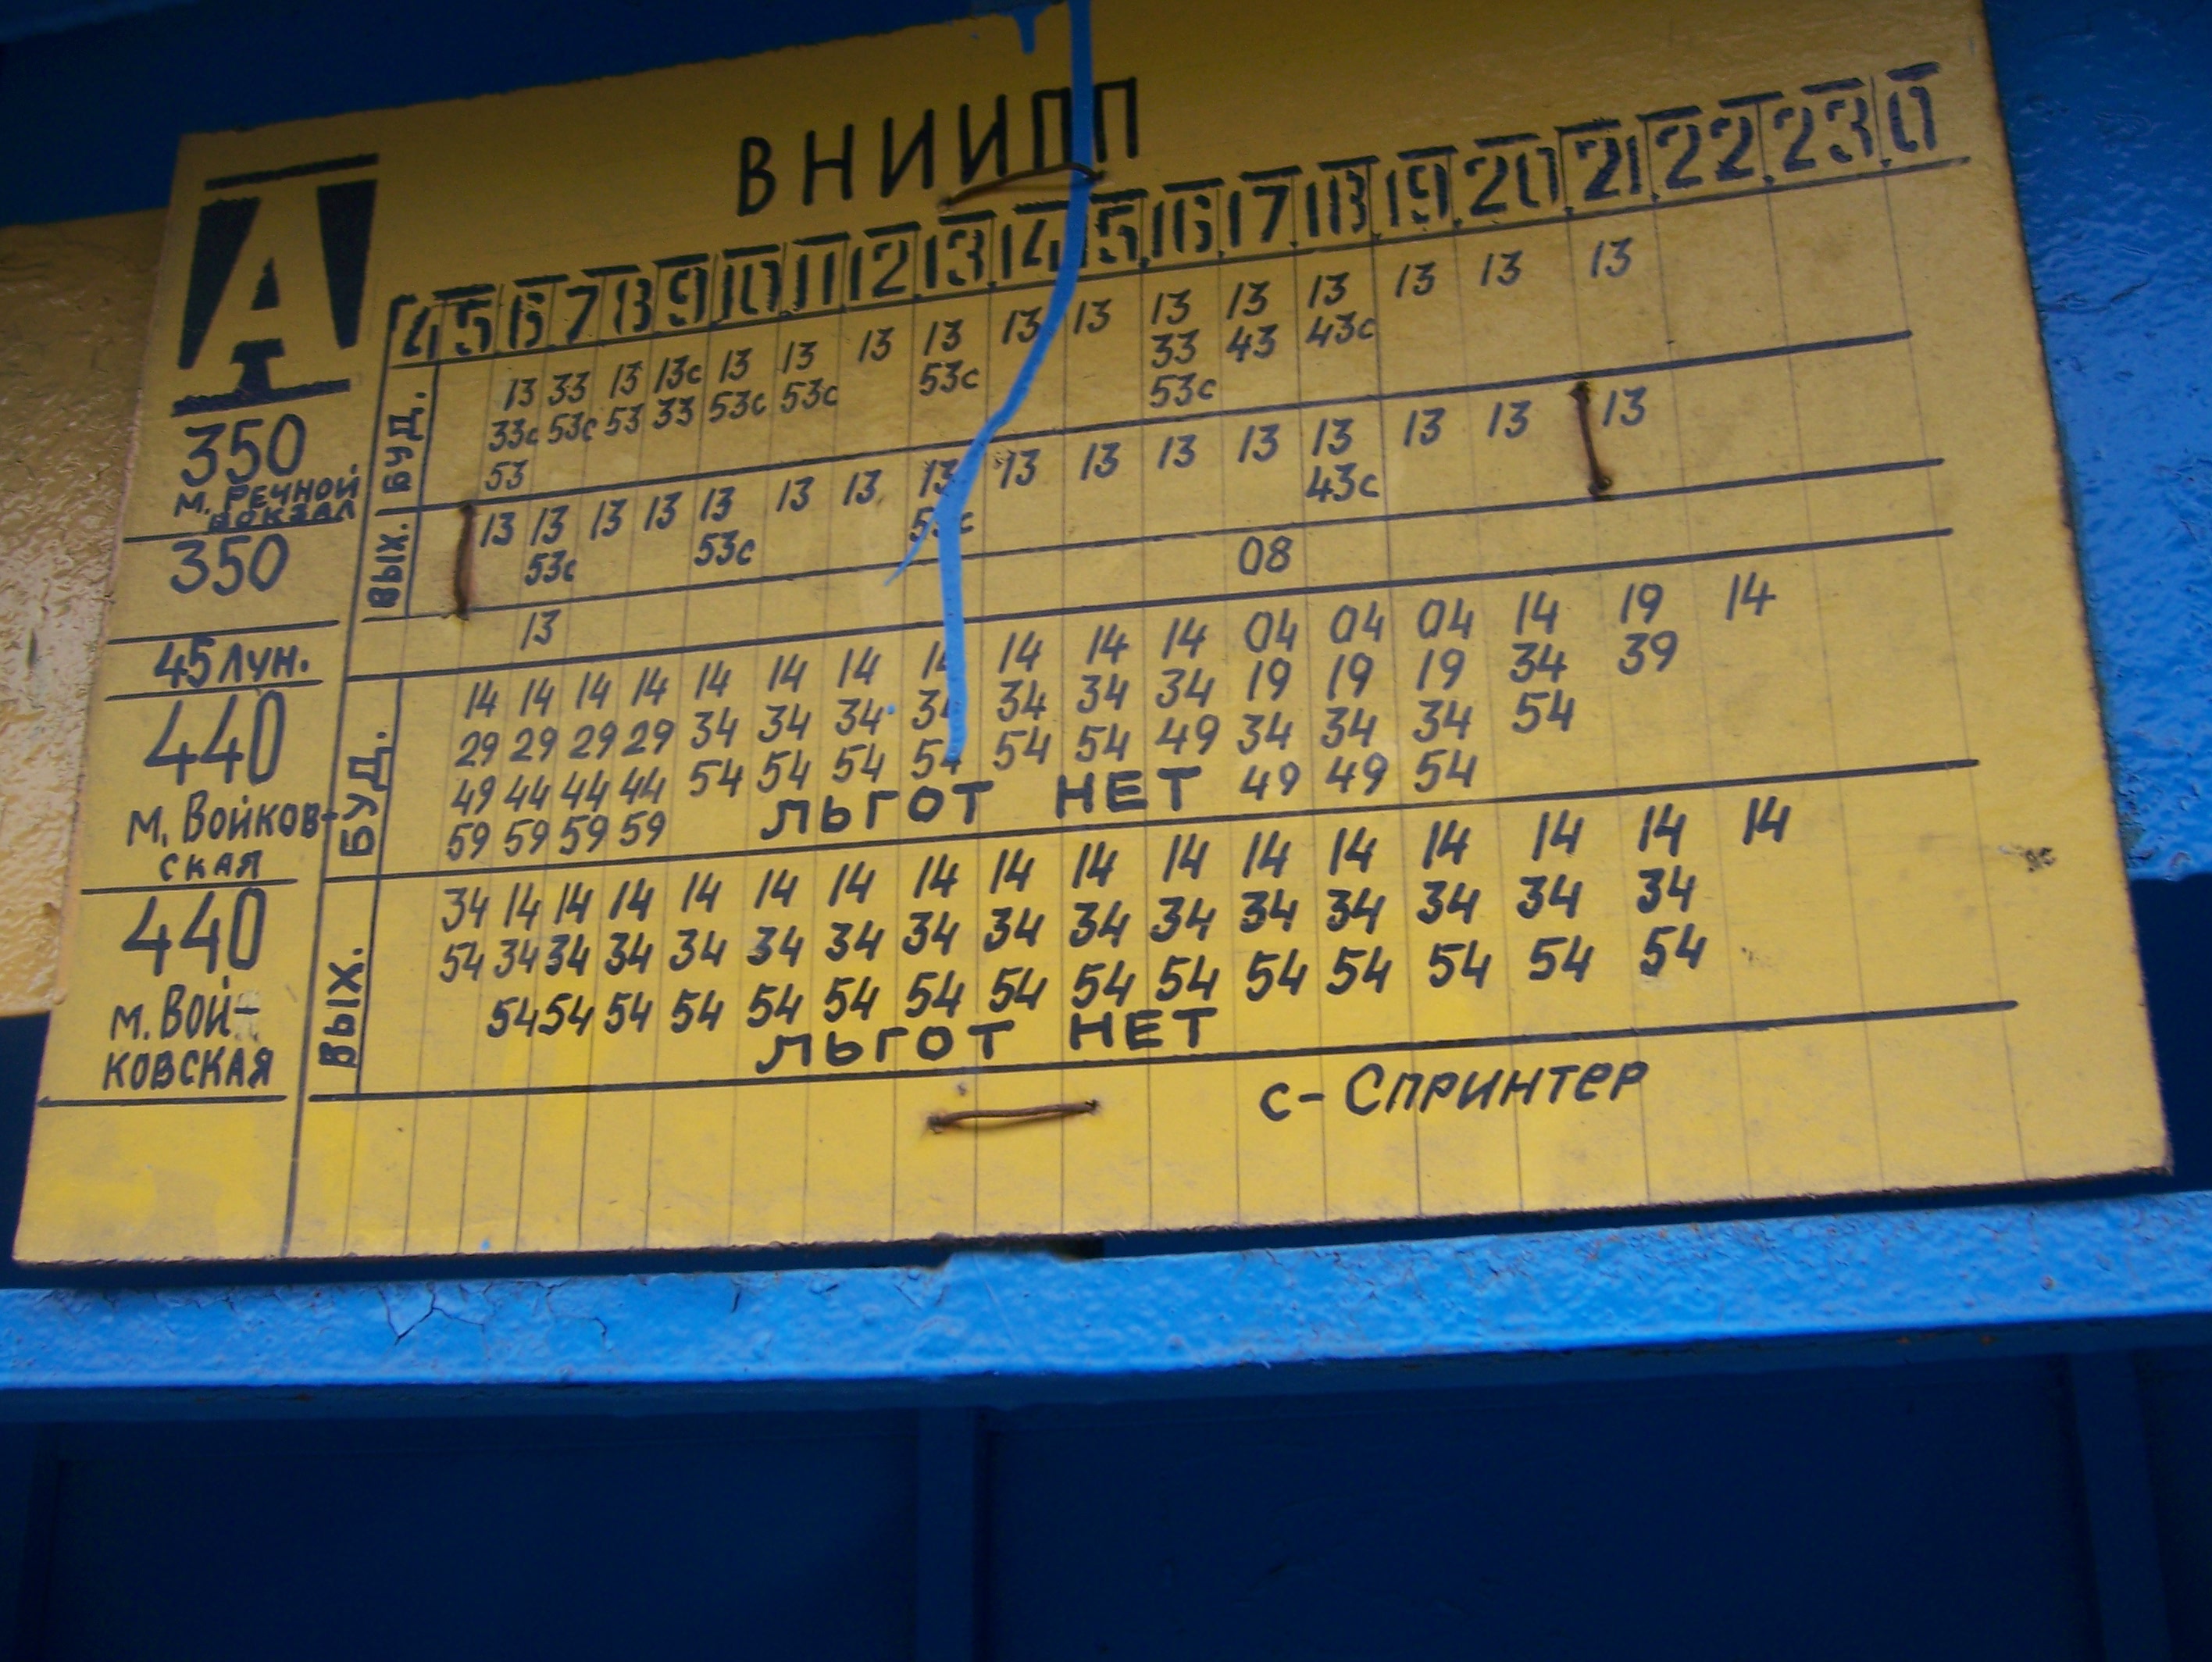 ВНИИПП
А
4 5 6 7 8 9 10 11 12 13 14 15 16 17 18 19 20 21 22 23 0
350
М. РЕЧНОЙ
ВОКЗАЛ
БУД.
13 33 13 13с 13 13 13 13 13 13 13 13 13 13 13 13
33с 53с 53 33 53с 53с 53с 33 43 43с
53 53с
350
ВЫХ.
13 13 13 13 13 13 13 13 13 13 13 13 13 13 13 13
53с 53с 53с 43с
45 ЛУН.
13 08
440
М. ВОЙКОВ-
СКАЯ
БУД.
14 14 14 14 14 14 14 14 14 14 14 04 04 04 14 19 14
29 29 29 29 34 34 34 34 34 34 34 19 19 19 34 39
49 44 44 44 54 54 54 54 54 54 49 34 34 34 54
59 59 59 59 ЛЬГОТ НЕТ 49 49 54
440
М. ВОЙ-
КОВСКАЯ
ВЫХ.
34 14 14 14 14 14 14 14 14 14 14 14 14 14 14 14 14
54 34 34 34 34 34 34 34 34 34 34 34 34 34 34 34
54 54 54 54 54 54 54 54 54 54 54 54 54 54 54
ЛЬГОТ НЕТ
с- Спринтер